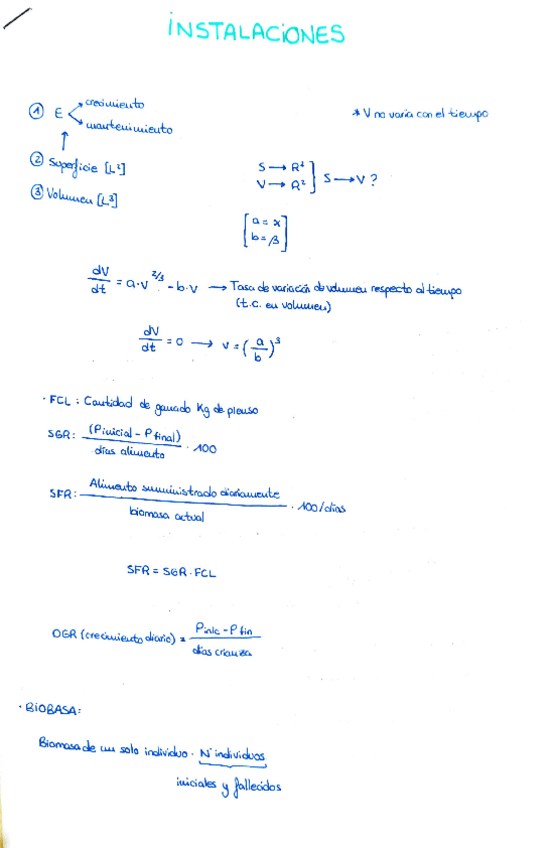 INSTALACIONES
① E crecimiento
mantenimiento
* V no varia con el tiempo
② Superficie [L²]
③ Volumen [L³]
S → R²
V → R³
S → V ?
a = α
b = β
dV/dt = a·V^2/3 - b·V → Tasa de variación de volumen respecto al tiempo
(t.c. en volumen)
dV/dt = 0 → V = (a/b)³
· FCL : Cantidad de ganado Kg de pienso
SGR: (Pinicial - P final) / días alimento · 100
SFR: Alimento suministrado diariamente / biomasa actual · 100/días
SFR = SGR · FCL
OGR (crecimiento diario) = Pinic - P fin / días crianza
· BIOBASA:
Biomasa de un solo individuo · Nº individuos
iniciales y fallecidos